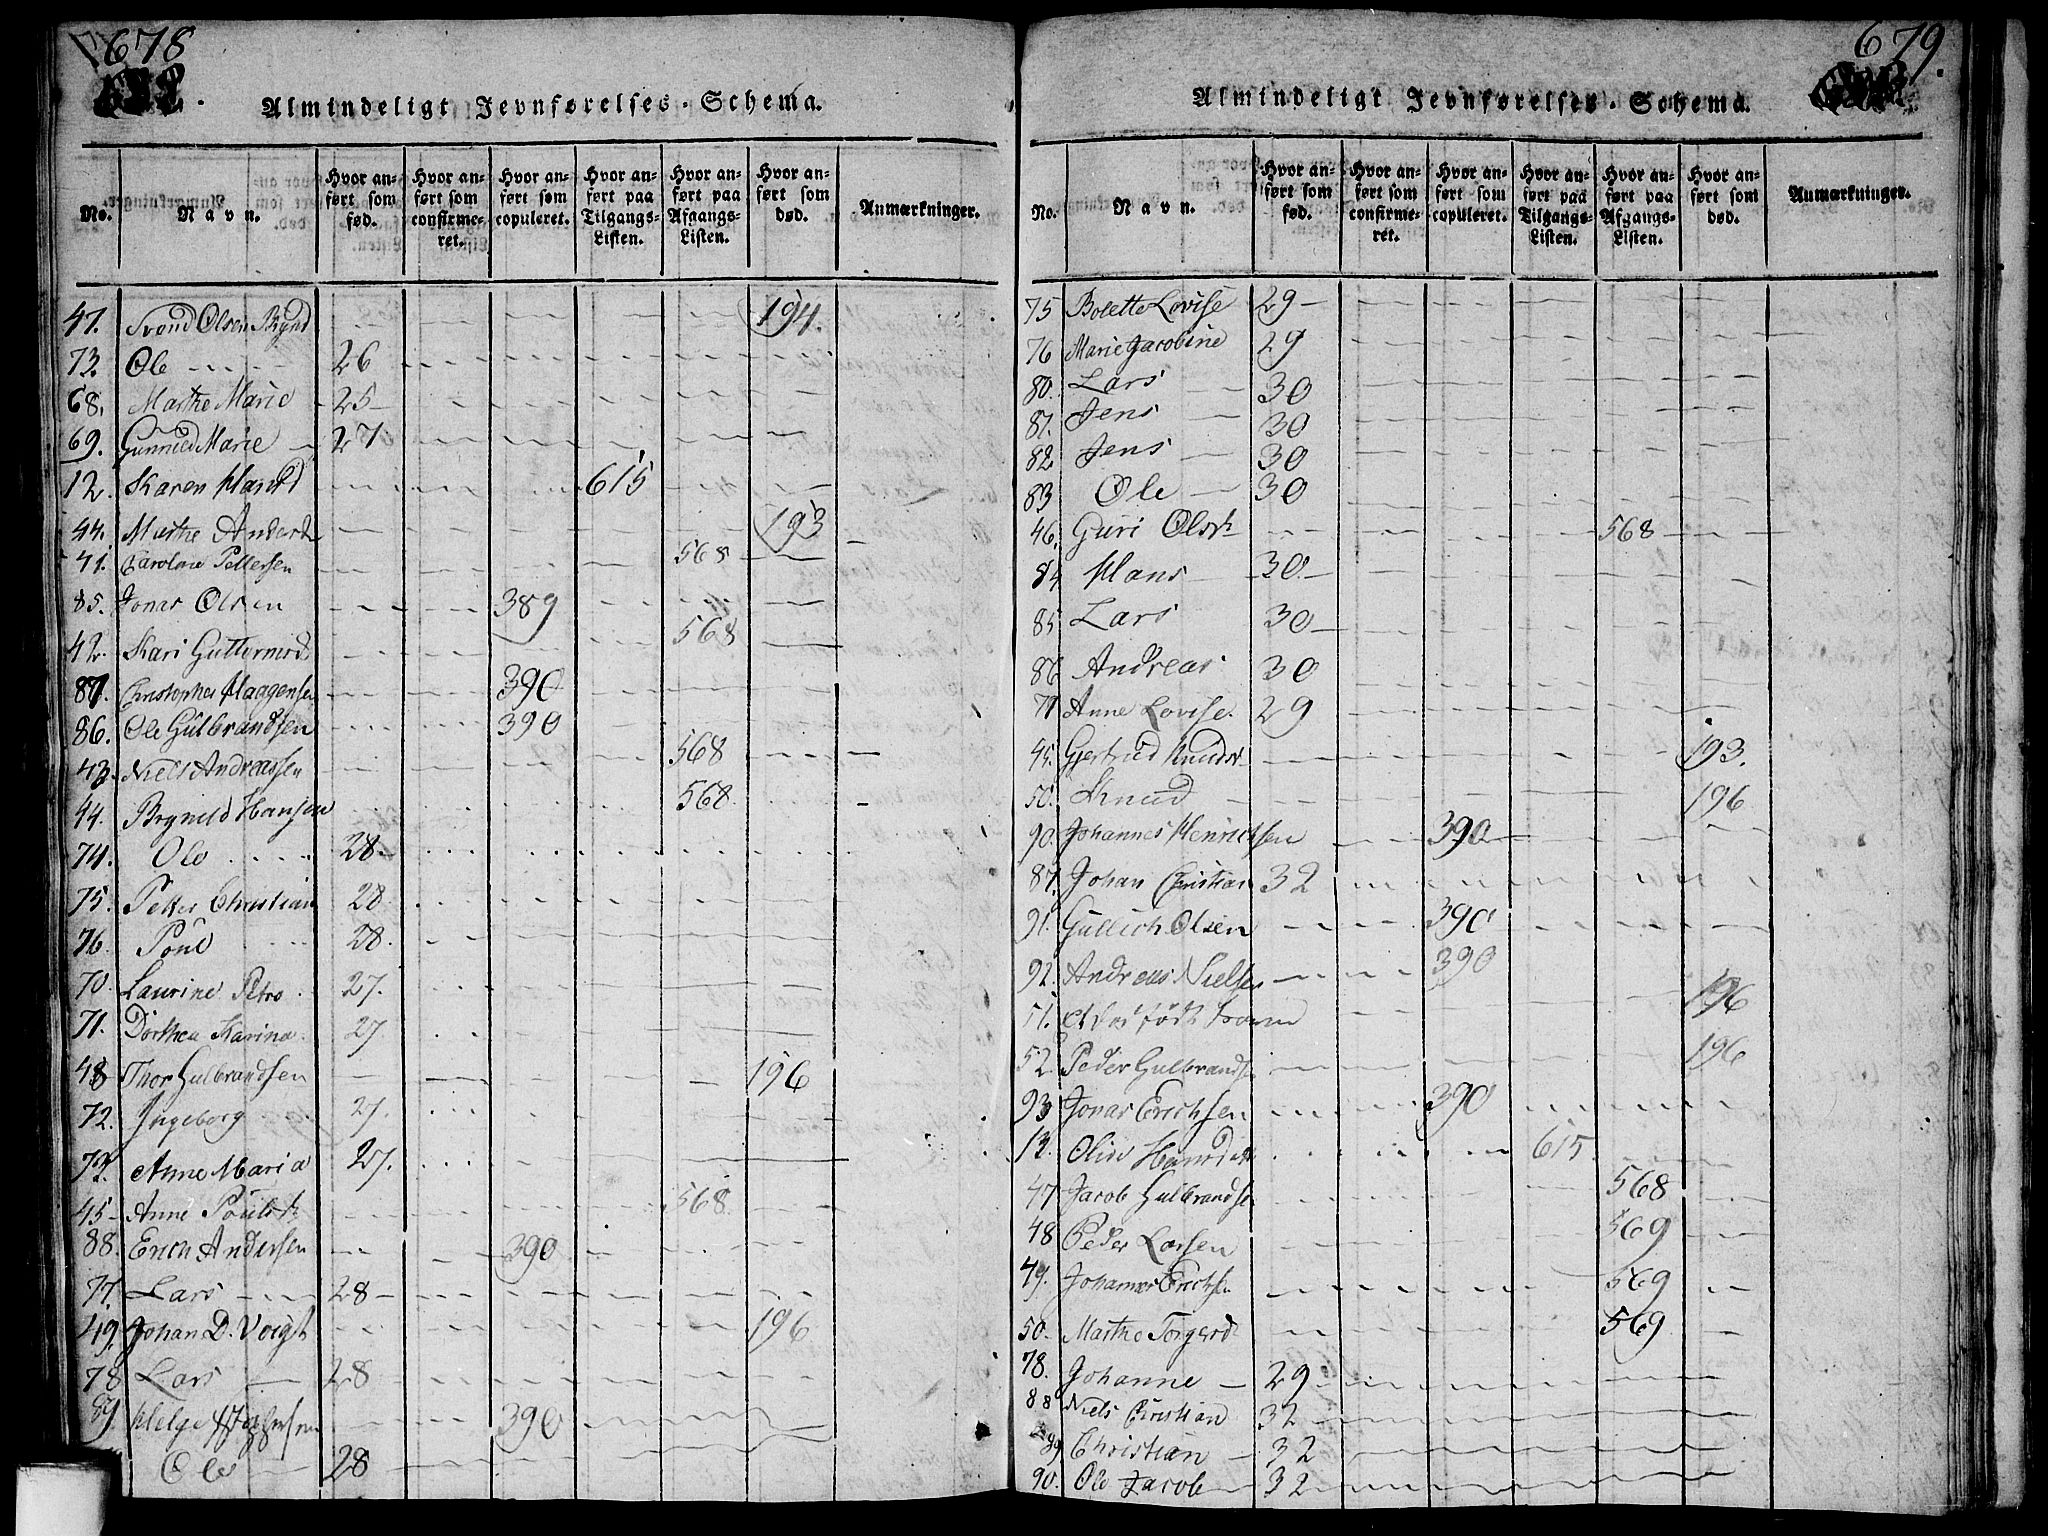 678
Almindeligt Jevnførelses-Schema.
No. Navn. Hvor anført som fød. Hvor anført som confirmeret. Hvor anført som copuleret. Hvor anført paa Tilgangs-Listen. Hvor anført paa Afgangs-Listen. Hvor anført som død. Anmærkninger.
47. Svend Olsen 194.
73. Ole 26
68. Marthe Marie 25
69. Gunnild Marie 27
12. Karen Hansd 615
44. Marthe Andersd 193
41. Caroline Pettersen 568
85. Jonas Olsen 389
42. Kari Guttormsd 568
87. Christopher Haagensen 390
86. Ole Gulbrandsen 390
43. Niels Andreassen 568
44. Brynild Hansen 568
74. Ole 28
75. Petter Christian 28
76. Poul 28.
70. Laurine Petro 27.
71. Dorthea Karina 27
48 Thor Gulbrandsen 196
72. Ingeborg 27
73. Anne Maria 27.
45 Anne Poulsd 568
88. Erich Andersen 390
77. Lars 28
49. Johan D. Voigt 196
78 Lars 28
89. Helge 390
Ole 28
679.
Almindeligt Jevnførelses-Schema.
No. Navn. Hvor anført som fød. Hvor anført som confirmeret. Hvor anført som copuleret. Hvor anført paa Tilgangs-Listen. Hvor anført paa Afgangs-Listen. Hvor anført som død. Anmærkninger.
75 Bolette Lovise 29
76 Marie Jacobine 29
80. Lars 30
81. Jens 30
82 Jens 30
83 Ole 30
46. Guri Olsd 568
84 Hans 30
85 Lars 30
86 Andreas 30
77 Anne Lovise 29
45. Gjertrud Knudsd 193.
50. Knud 196
90. Johannes Henrichsen 390
87. Johan Christian 32
91. Gullich Olsen 390
92. Andreas Nielsen 390
51. et dødfødt barn 196
52. Peder Gulbrandsen 196
93 Jonas Erichsen 390
13. Olive Hansdatter 615
47 Jacob Gulbrandsen 568
48 Peder Larsen 569
49. Johannes Erichsen 569
50. Marthe Torgersd 569
78. Johanne 29
88 Niels Christian 32
89 Christian 32
90. Ole Jacob 32